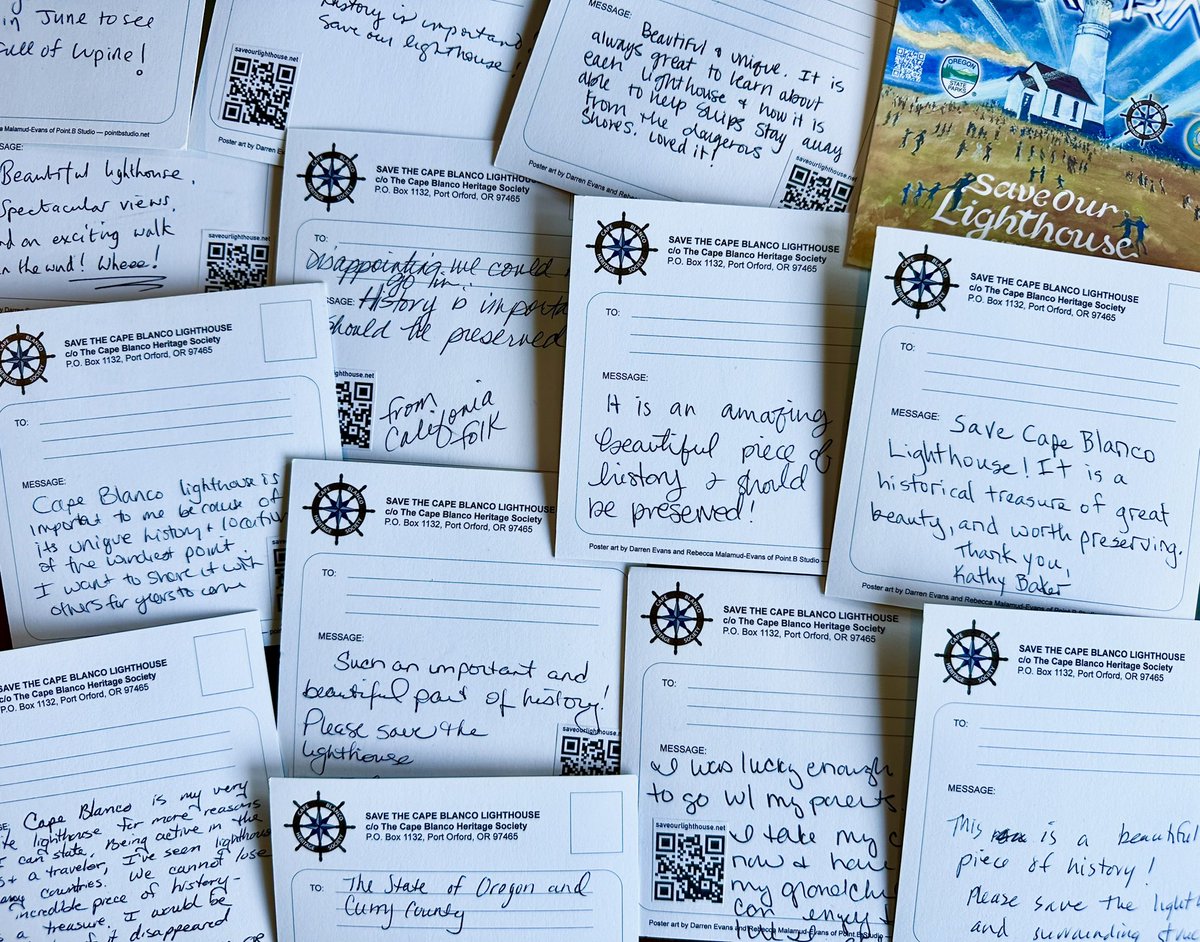 in June to see
full of lupine!
Malamud-Evans of Point.B Studio — pointbstudio.net
History is important
Save our lighthouse
saveourlighthouse.net
MESSAGE:
Beautiful & unique. It is
always great to learn about
each lighthouse & how it is
able to help ships stay away
from the dangerous
shores. Loved it!
saveourlighthouse.net
Poster art by Darren Evans and Rebecca
OREGON
STATE
PARKS
Save Our
Lighthouse
Beautiful lighthouse.
Spectacular views.
and an exciting walk
in the wind! Wheee!
saveourlighthouse.net
SAVE THE CAPE BLANCO LIGHTHOUSE
c/o The Cape Blanco Heritage Society
P.O. Box 1132, Port Orford, OR 97465
TO:
Disappointing we could
go in.
MESSAGE: History is
should be preserved
lighthouse.net
from
California
folk
SAVE THE CAPE BLANCO LIGHTHOUSE
c/o The Cape Blanco Heritage Society
P.O. Box 1132, Port Orford, OR 97465
TO:
MESSAGE:
It is an amazing
beautiful piece of
history & should
be preserved!
Poster art by Darren Evans and Rebecca Malamud-Evans of Point.B Studio
SAVE THE CAPE BLANCO LIGHTHOUSE
c/o The Cape Blanco Heritage Society
P.O. Box 1132, Port Orford, OR 97465
TO:
MESSAGE: Save Cape Blanco
Lighthouse! It is a
historical treasure of great
beauty, and worth preserving.
Thank you,
Kathy Baker
Poster art by Darren Evans and Rebecca Malamud-Evans of Point.B
SAVE THE CAPE BLANCO LIGHTHOUSE
c/o The Cape Blanco Heritage Society
P.O. Box 1132, Port Orford, OR 97465
TO:
MESSAGE:
Cape Blanco lighthouse is
important to me because of
its unique history & location
of the windiest point.
I want to share it with
others for years to come
SAVE THE CAPE BLANCO LIGHTHOUSE
c/o The Cape Blanco Heritage Society
P.O. Box 1132, Port Orford, OR 97465
TO:
MESSAGE:
Such an important and
beautiful part of history!
Please save the
lighthouse
saveourlighthouse.net
SAVE THE CAPE BLANCO LIGHTHOUSE
c/o The Cape Blanco Heritage Society
P.O. Box 1132, Port Orford, OR 97465
TO:
MESSAGE:
I was lucky enough
to go w/ my parents.
saveourlighthouse.net
I take my
now & have
my
can enjoy
Poster art by Darren Evans and Rebecca Malamud-Evans of Point.B Studio
CAPE BLANCO
SAVE THE CAPE BLANCO LIGHTHOUSE
c/o The Cape Blanco Heritage Society
P.O. Box 1132, Port Orford, OR 97465
TO:
MESSAGE:
This is a beautiful
piece of history!
Please save the
and surrounding
SAVE THE CAPE BLANCO LIGHTHOUSE
c/o The Cape Blanco Heritage Society
P.O. Box 1132, Port Orford, OR 97465
Cape Blanco is my very
lighthouse for more reasons
I can state. Being active in the
& a traveler, I've seen lighthouses
countries. We cannot lose
incredible piece of history-
a treasure. I would be
disappeared
SAVE THE CAPE BLANCO LIGHTHOUSE
c/o The Cape Blanco Heritage Society
P.O. Box 1132, Port Orford, OR 97465
TO: The State of Oregon and
Curry County